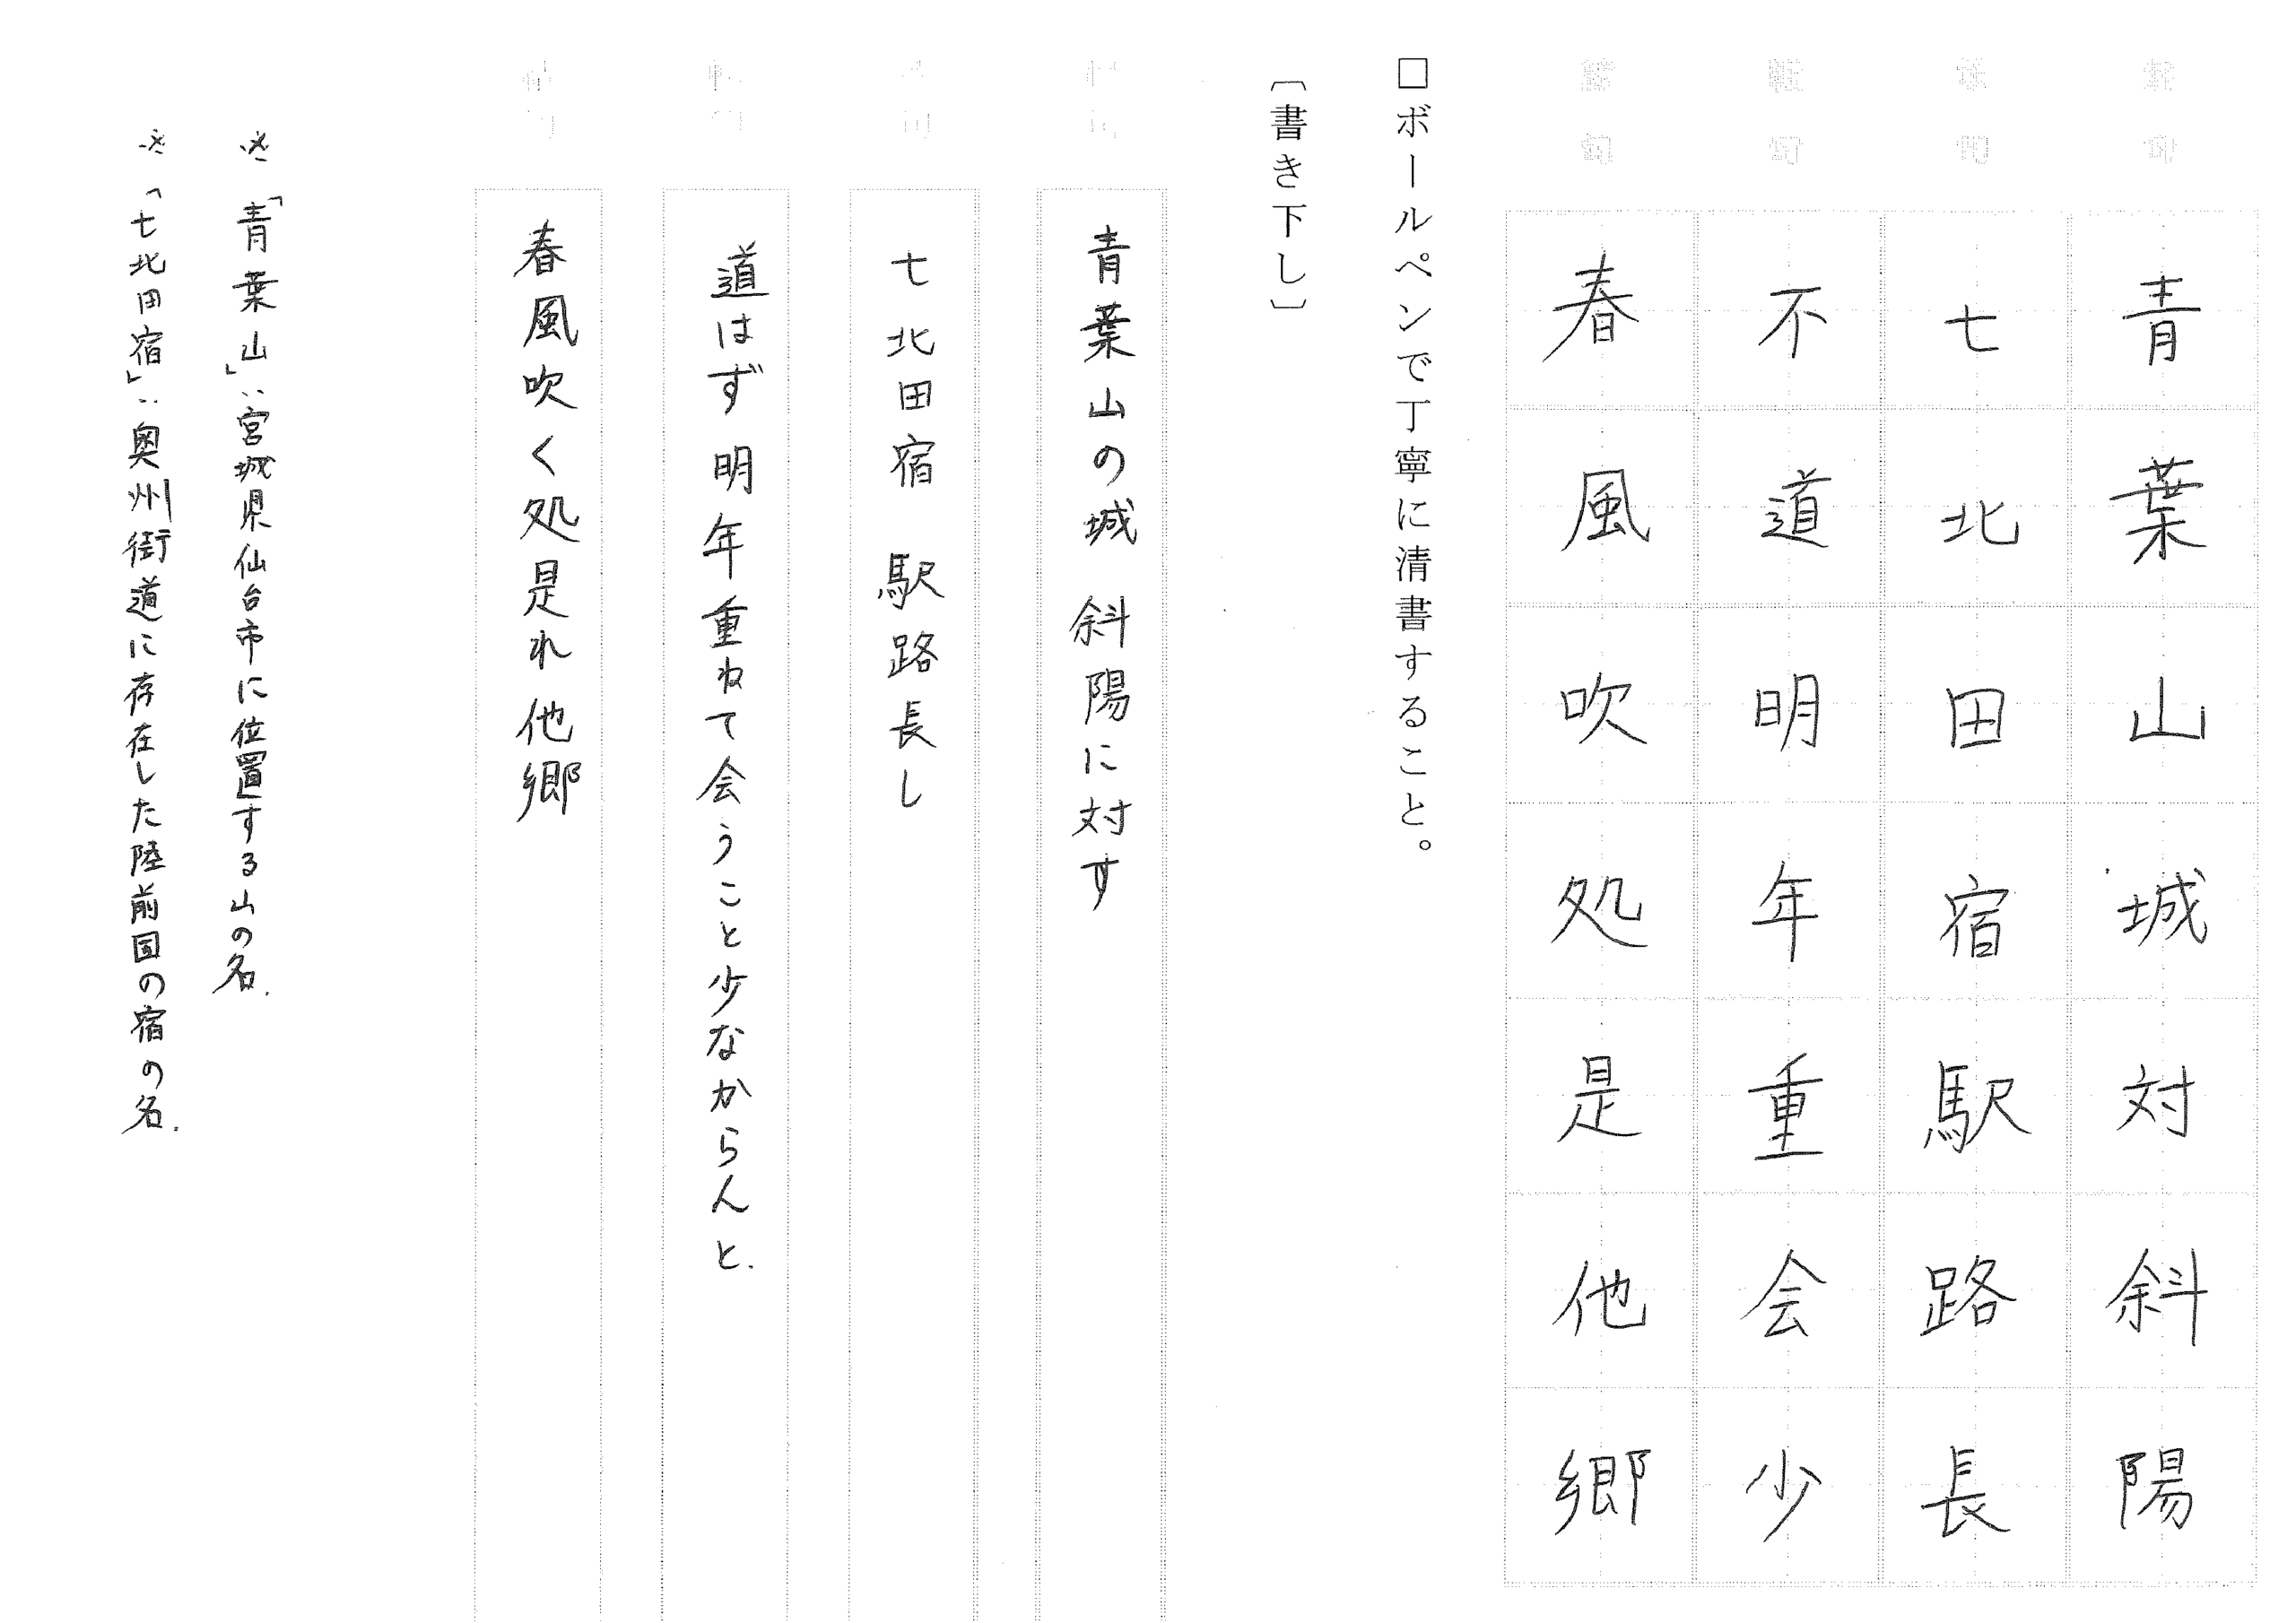 青葉山城対斜陽
七北田宿駅路長
不道明年重会少
春風吹処是他郷
□ボールペンで丁寧に清書すること。
〔書き下し〕
青葉山の城 斜陽に対す
七北田宿 駅路長し
道はず 明年重ねて会うこと少なからんと.
春風吹く処是れ他郷
※「青葉山」:宮城県仙台市に位置する山の名.
※「七北田宿」:奥州街道に存在した陸前国の宿の名.